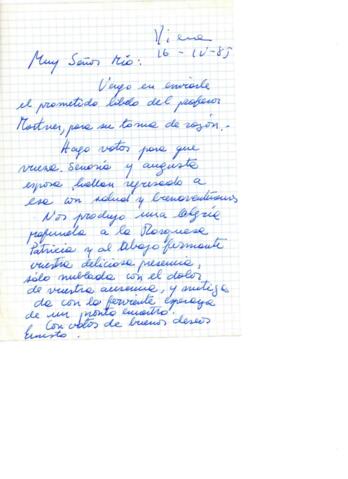 Viena
16-IV-85
Muy Señor Mío:
Vengo en enviarle
el prometido libelo del profesor
Mortner, para su toma de razón.-
Hago votos para que
vuesa Señoría y augusta
esposa hallan regresado a
esa con salud y
Nos produjo una alegría
a la Marquesa
Patricia y al abajo firmante
vuestra deliciosa presencia,
sólo nublada con el dolor
de vuestra ausencia, y mitiga
da con la ferviente esperanza
de un pronto encuentro.
Con votos de buenos deseos
Ernesto.